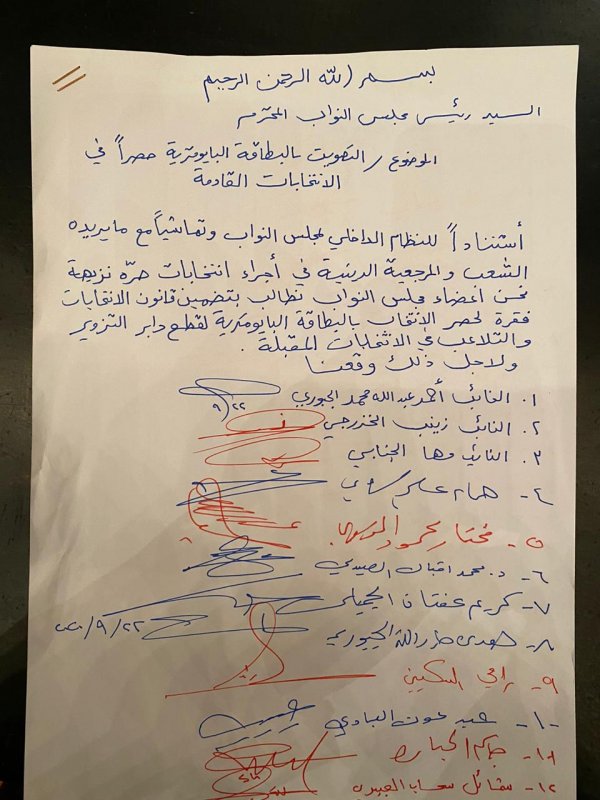 بسم الله الرحمن الرحيم
السيد رئيس مجلس النواب المحترم
الموضوع / التصويت بالبطاقة البايومترية حصراً في
الانتخابات القادمة
أستناداً للنظام الداخلي لمجلس النواب وتماشياً مع مايريده
الشعب والمرجعية الدينية في أجراء انتخابات حرّه نزيهة
نحن اعضاء مجلس النواب نطالب بتضمين قانون الانتخابات
فقرة لحصر الانتخاب بالبطاقة البايومترية لقطع دابر التزوير
والتلاعب في الانتخابات المقبلة .
ولاجل ذلك وقعنا
١. النائب أحمد عبدالله محمد الجبوري
٩/٢٢
٢. النائب زينب الخزرجي
٣. النائب مها الجنابي
٤- همام علي
٥- مختار محمود الموسوي
٦- د. محمد اقبال الصيدلي
٧- كريم عفتان الجميلي
٨- هدى جارالله الجبوري ٩/٢٢
٩- رامي السكيني
١٠- عبد عون العبادي
١١-
١٢-